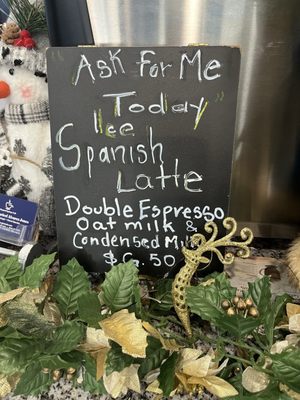 "Ask For Me
Today"
Ice
Spanish
Latte
Double Espresso
Oat milk &
Condensed Milk
$6.50